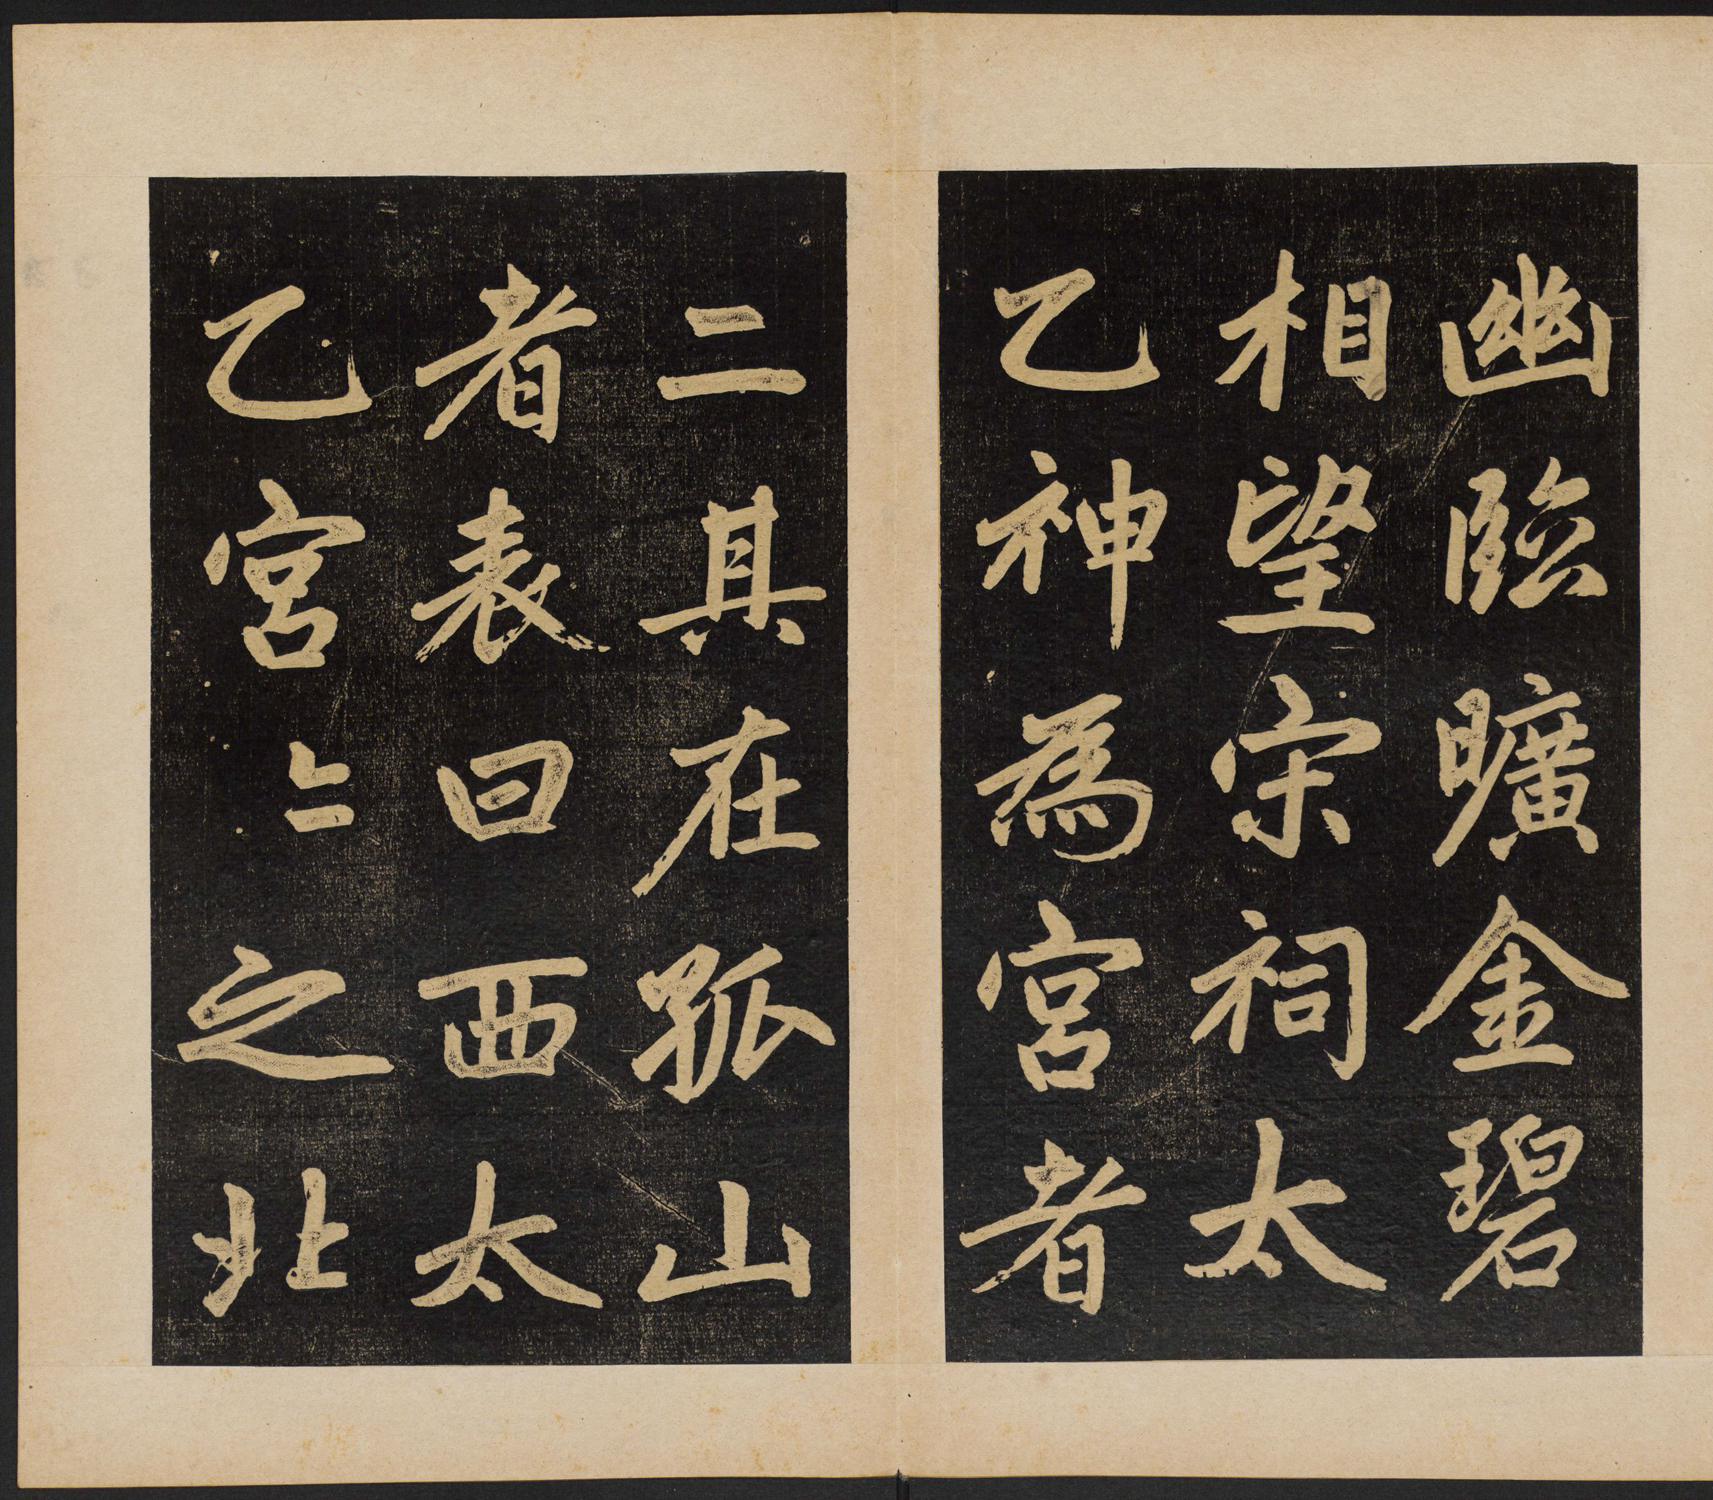 幽臨曠金碧
相望宋祠太
乙神為宮者
二其在孤山
者表曰西太
乙宮=之北